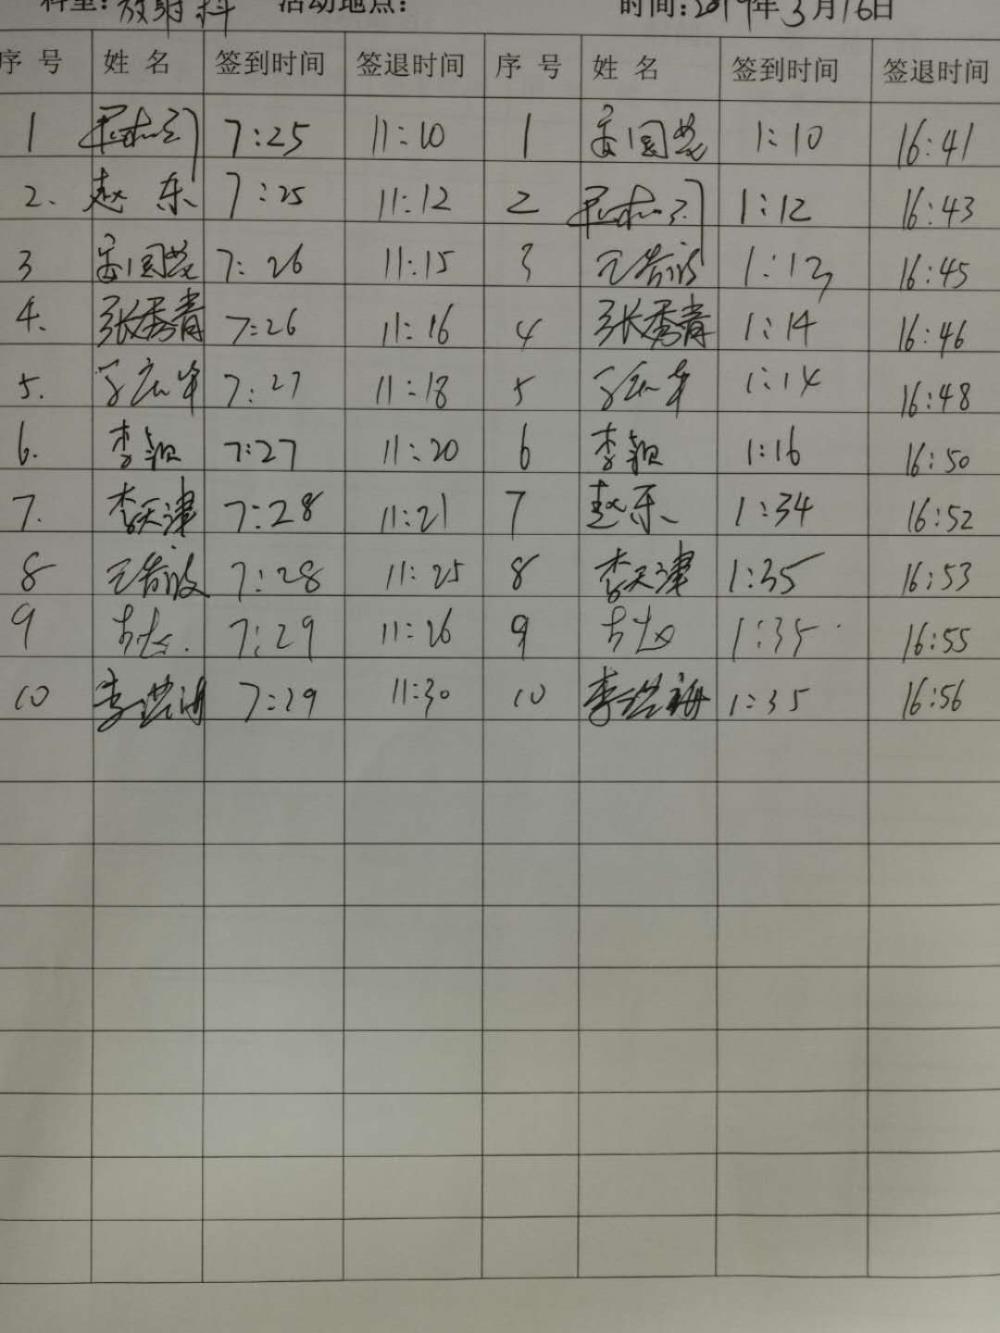 科室:放射科 活动地点: 时间:2019年3月16日
序号 姓名 签到时间 签退时间 序号 姓名 签到时间 签退时间
1 7:25 11:10 1 1:10 16:41
2. 赵东 7:25 11:12 2 1:12 16:43
3 7:26 11:15 3 1:13 16:45
4. 张秀青 7:26 11:16 4 张秀青 1:14 16:46
5. 7:27 11:18 5 1:14 16:48
6. 李颖 7:27 11:20 6 李颖 1:16 16:50
7. 李天津 7:28 11:21 7 赵东 1:34 16:52
8 7:28 11:25 8 李天津 1:35 16:53
9 7:29 11:26 9 1:35 16:55
10 7:29 11:30 10 1:35 16:56